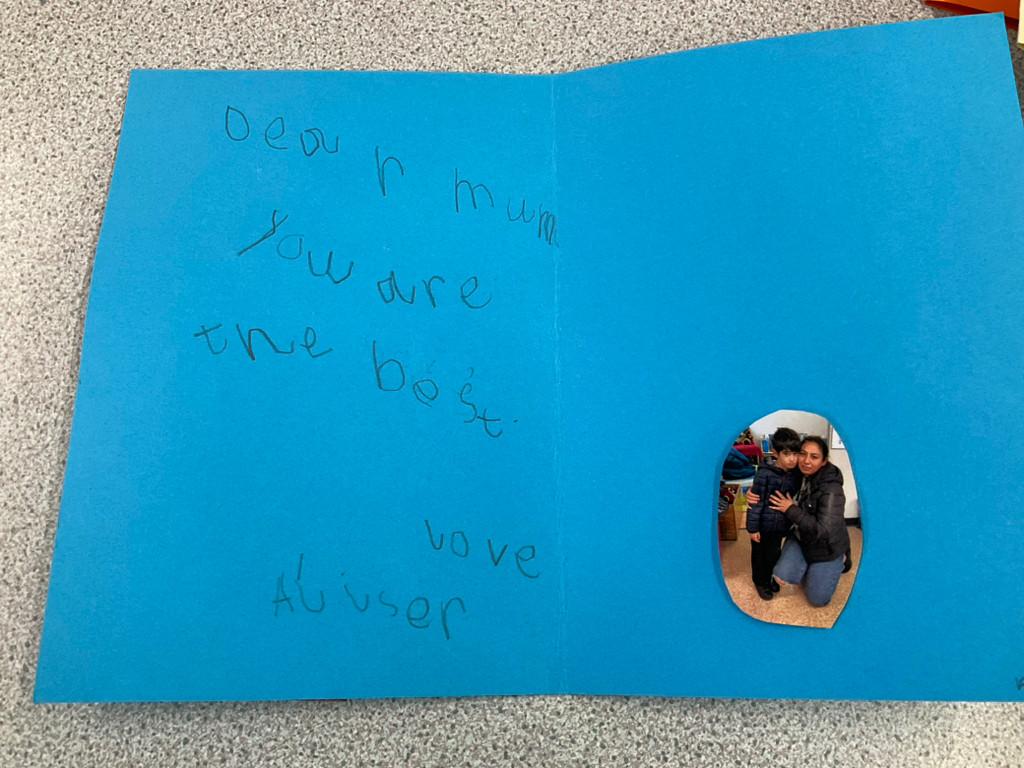 Dear mum
You are
the best.
love
Aliser